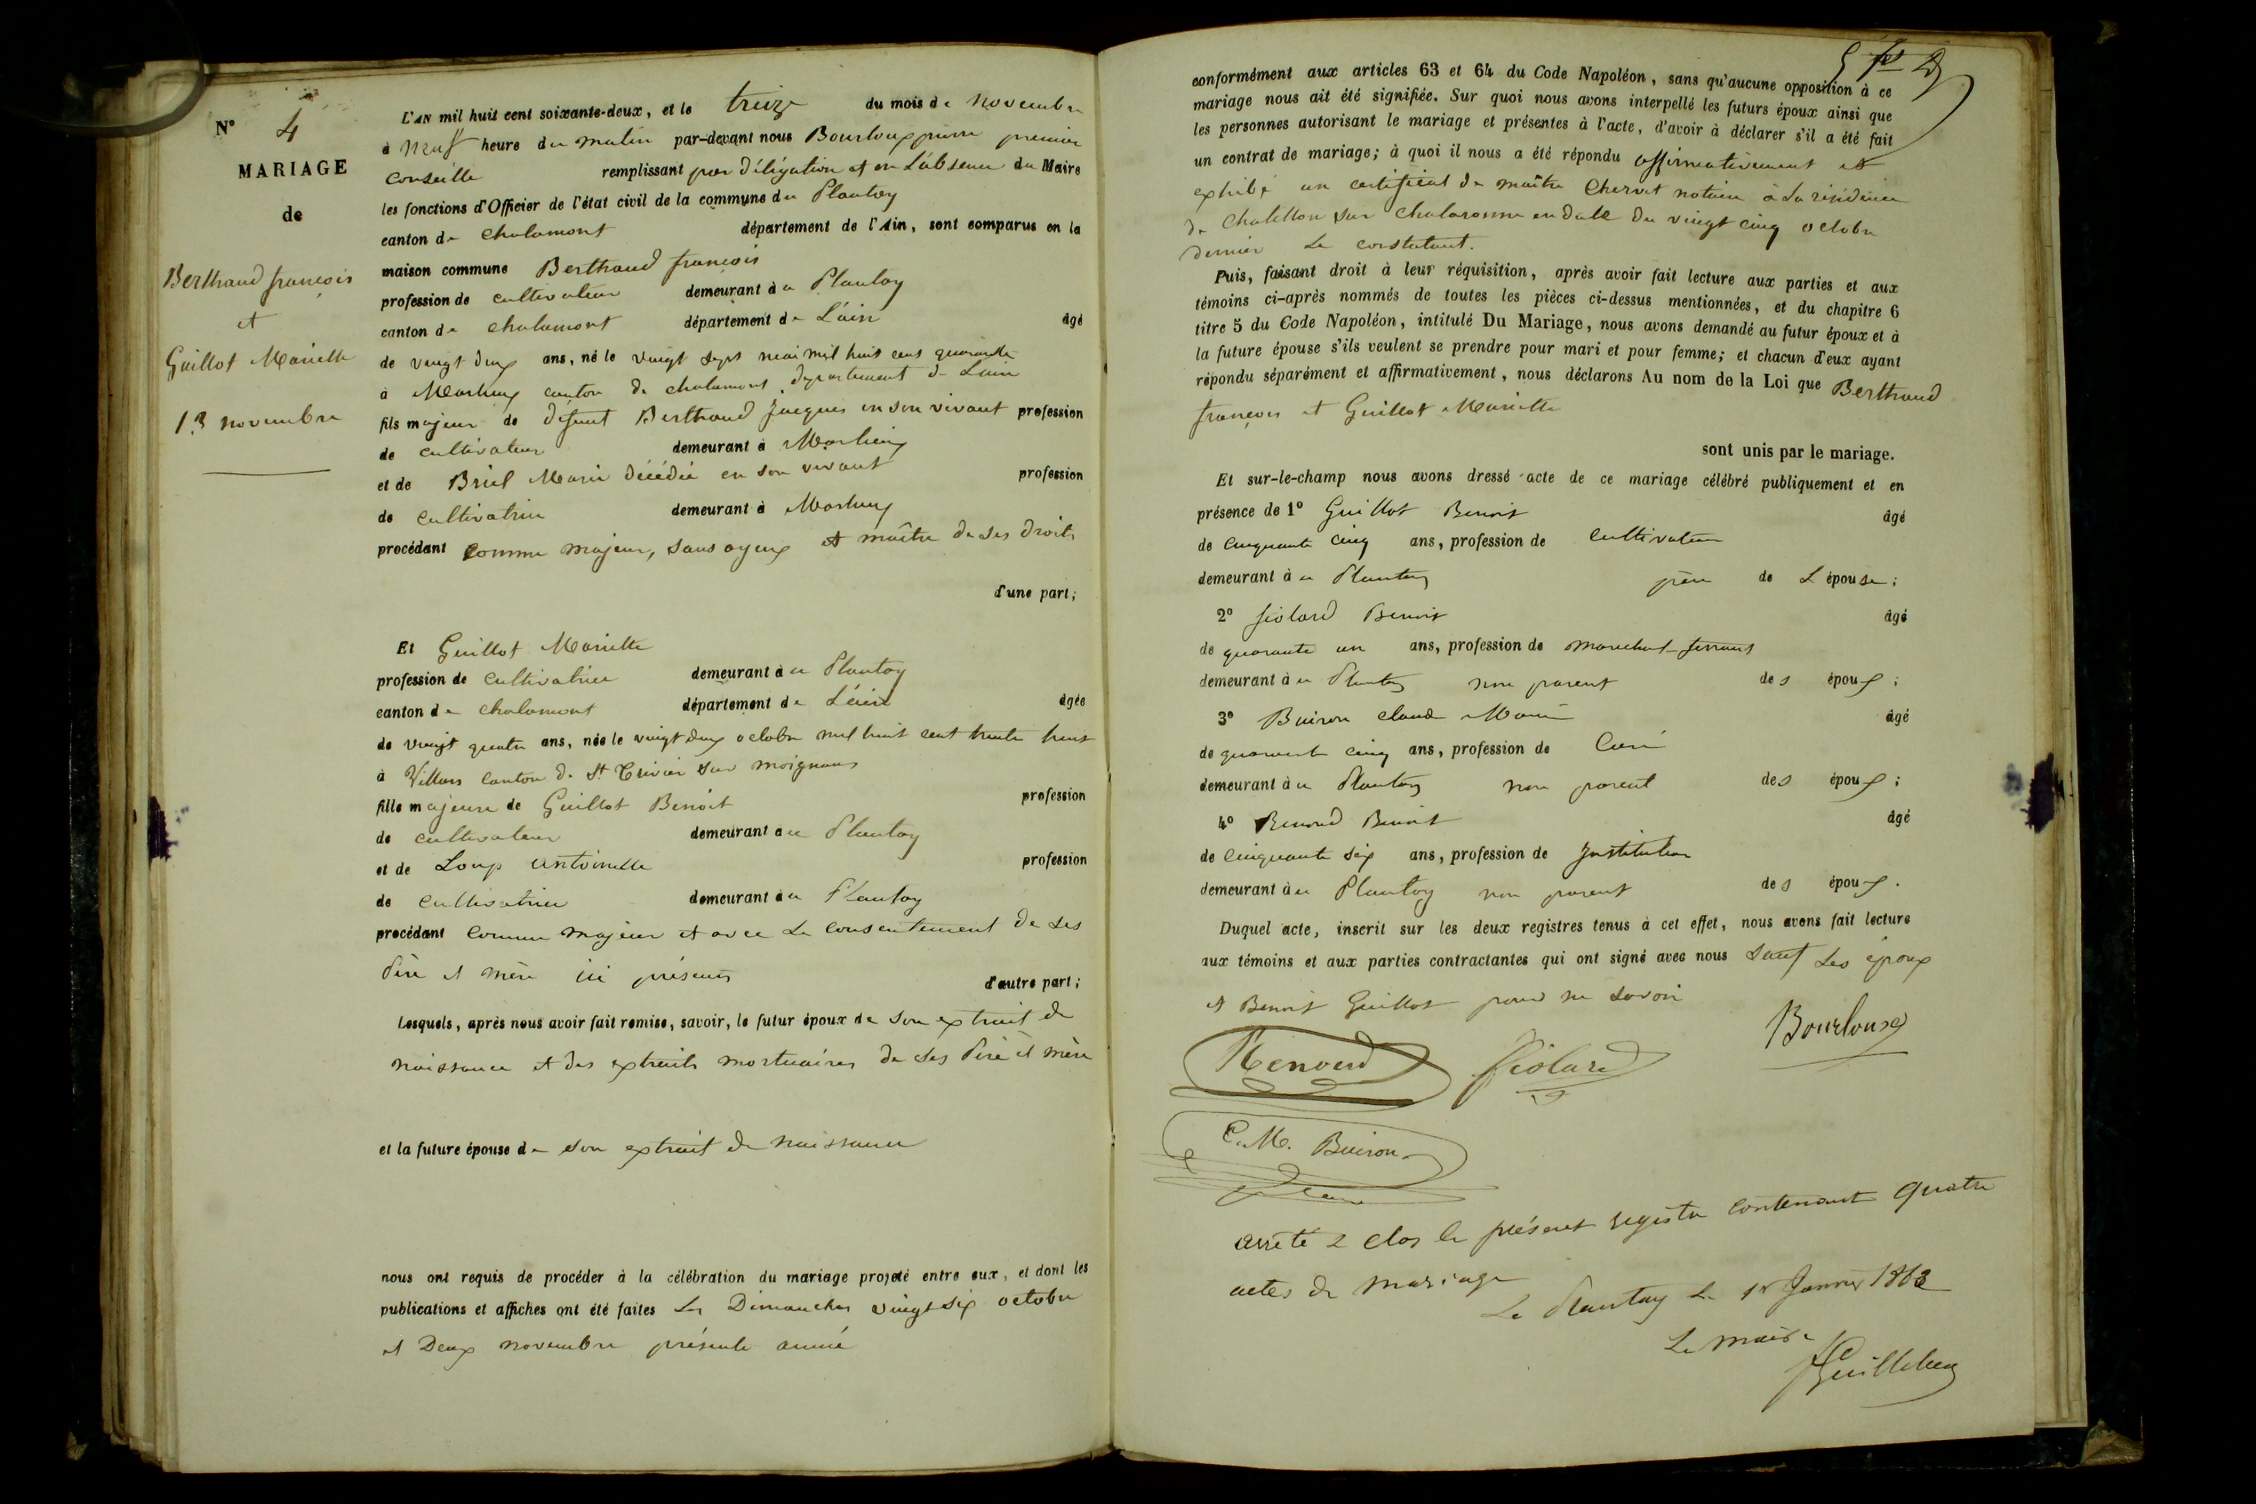 N° 4
MARIAGE
de
Berthand françois
et
Guillot Mariette
13 novembre
L'AN mil huit cent soixante-deux, et le treize du mois de novembre
à neuf heure du matin par-devant nous Bourloux pierre premier
conseille remplissant par déligation et en L'absence du Maire
les fonctions d'Officier de l'état civil de la commune du Plantay
canton de chalamont département de l'Ain, sont comparus en la
maison commune Berthaud françois
profession de cultivateur demeurant à u Plantay
canton de chalamont département de L'ain âgé
de vingt deux ans, né le vingt sept mai mil huit cent quarante
à Marlieux canton de chalamont, département de Lain
fils majeur de défunt Berthaud Jacques en son vivant profession
de cultivateur demeurant à Marlieux
et de Briel Marie décédée en son vivant profession
de cultivatrice demeurant à Marlieux
procédant comme majeur, sans ayeux et maître de ses droits
d'une part;
Et Guillot Mariette
profession de cultivatrice demeurant à u Plantay
canton de chalamont département de L'ain âgée
de vingt quatre ans, née le vingt deux octobre mil huit cent trente huit
à Villars canton de St Trivier sur moignans
fille majeure de Guillot Benoit profession
de cultivateur demeurant au Plantay
et de Loup antoinette profession
de cultivatrice demeurant au Plantay
procédant comme majeur et avec Le consentement de ses
Père et mère ici présents d'autre part;
Lesquels, après nous avoir fait remise, savoir, le futur époux de son extrait de
naissance et des extraits mortuaires de ses Père et mère
et la future épouse de son extrait de naissance
nous ont requis de procéder à la célébration du mariage projeté entre eux, et dont les
publications et affiches ont été faites Les Dimanches vingt six octobre
et Deux novembre présente année
conformément aux articles 63 et 64 du Code Napoléon, sans qu'aucune opposition à ce
mariage nous ait été signifiée. Sur quoi nous avons interpellé les futurs époux ainsi que
les personnes autorisant le mariage et présentes à l'acte, d'avoir à déclarer s'il a été fait
un contrat de mariage; à quoi il nous a été répondu affirmativement et
exhibé un certificat de maître Chervet notaire à La résidence
de Chatillon sur chalaronne en date du vingt cinq octobre
dernier Le constatant.
Puis, faisant droit à leur réquisition, après avoir fait lecture aux parties et aux
témoins ci-après nommés de toutes les pièces ci-dessus mentionnées, et du chapitre 6
titre 5 du Code Napoléon, intitulé Du Mariage, nous avons demandé au futur époux et à
la future épouse s'ils veulent se prendre pour mari et pour femme; et chacun d'eux ayant
répondu séparément et affirmativement, nous déclarons Au nom de la Loi que Berthaud
françois et Guillot Mariette
sont unis par le mariage.
Et sur-le-champ nous avons dressé acte de ce mariage célébré publiquement et en
présence de 1° Guillot Benoit âgé
de cinquante cinq ans, profession de cultivateur
demeurant à u Plantay père de L épouse;
2° fiolard Benoit âgé
de quarante un ans, profession de marechal ferrant
demeurant à u Plantay non parent des époux;
3° Buiron claude Marie âgé
de quarante cinq ans, profession de Curé
demeurant à u Plantay non parent des époux;
4° Renoud Benoit âgé
de cinquante six ans, profession de Instituteur
demeurant à u Plantay non parent des époux.
Duquel acte, inscrit sur les deux registres tenus à cet effet, nous avons fait lecture
aux témoins et aux parties contractantes qui ont signé avec nous sauf Les époux
et Benoit Guillot pour ne savoir
Renoud fiolard Bourloux
C. M. Buiron
arrêté & clos le présent registre contenant quatre
actes de mariage
Le Plantay Le 1er Janvier 1863
Le maire